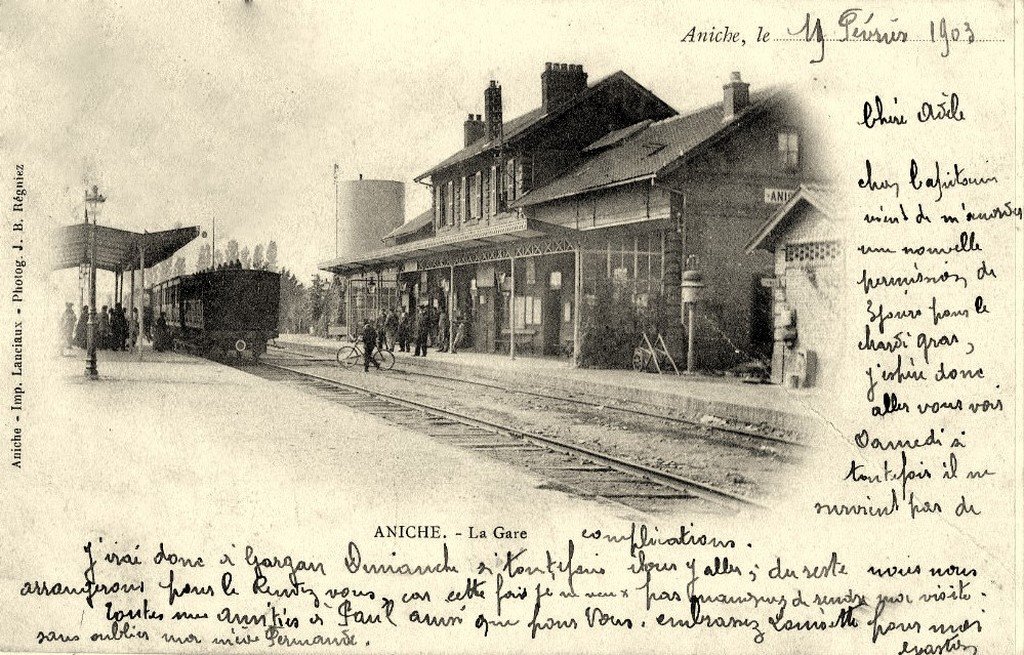 Aniche, le 19 Février 1903
Chère Adèle
Capitaine
vient de m'accorder
une nouvelle
permission de
3 jours pour le
Mardi gras,
j'espère donc
aller vous voir
Samedi si
toutefois il ne
survient pas de
complications.
ANICHE. - La Gare
J'irai donc à Gargan Dimanche si toutefois vous y allez ; du reste nous nous
arrangerons pour le Rendez vous, car cette fois je ne veux pas manquer de rendre ma visite.
Toutes mes amitiés à Paul ainsi que pour Vous. embrassez pour moi
sans oublier ma nièce Fernande.
Aniche - Imp. Lanciaux - Photog. J. B. Régniez
ANI